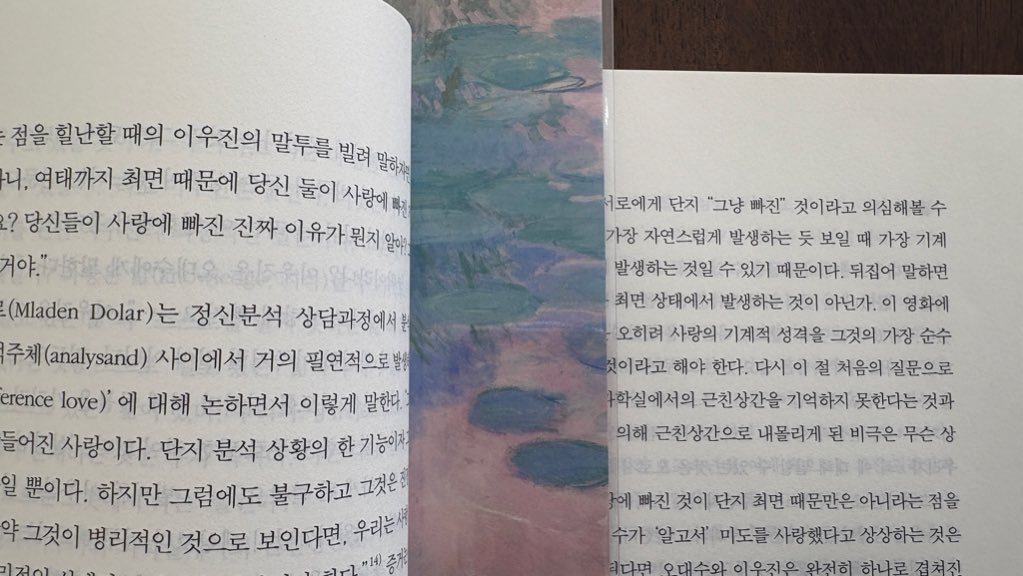 점을 힐난할 때의 이우진의 말투를 빌려 말하자면
여태까지 최면 때문에 당신 둘이 사랑에 빠진
당신들이 사랑에 빠진 진짜 이유가 뭔지 알아?
거야."
(Mladen Dolar)는 정신분석 상담과정에서
(analysand) 사이에서 거의 필연적으로
love)'에 대해 논하면서 이렇게 말한다.
사랑이다. 단지 분석 상황의 한 기능이자
뿐이다. 하지만 그럼에도 불구하고 그것은
그것이 병리적인 것으로 보인다면, 우리는
14)
서로에게 단지 "그냥 빠진" 것이라고 의심해볼 수
가장 자연스럽게 발생하는 듯 보일 때 가장 기계
발생하는 것일 수 있기 때문이다. 뒤집어 말하면
최면 상태에서 발생하는 것이 아닌가. 이 영화에
오히려 사랑의 기계적 성격을 그것의 가장 순수
것이라고 해야 한다. 다시 이 절 처음의 질문으로
과학실에서의 근친상간을 기억하지 못한다는 것과
의해 근친상간으로 내몰리게 된 비극은 무슨 상
빠진 것이 단지 최면 때문만은 아니라는 점을
수가 '알고서' 미도를 사랑했다고 상상하는 것은
된다면 오대수와 이우진은 완전히 하나로 겹쳐진